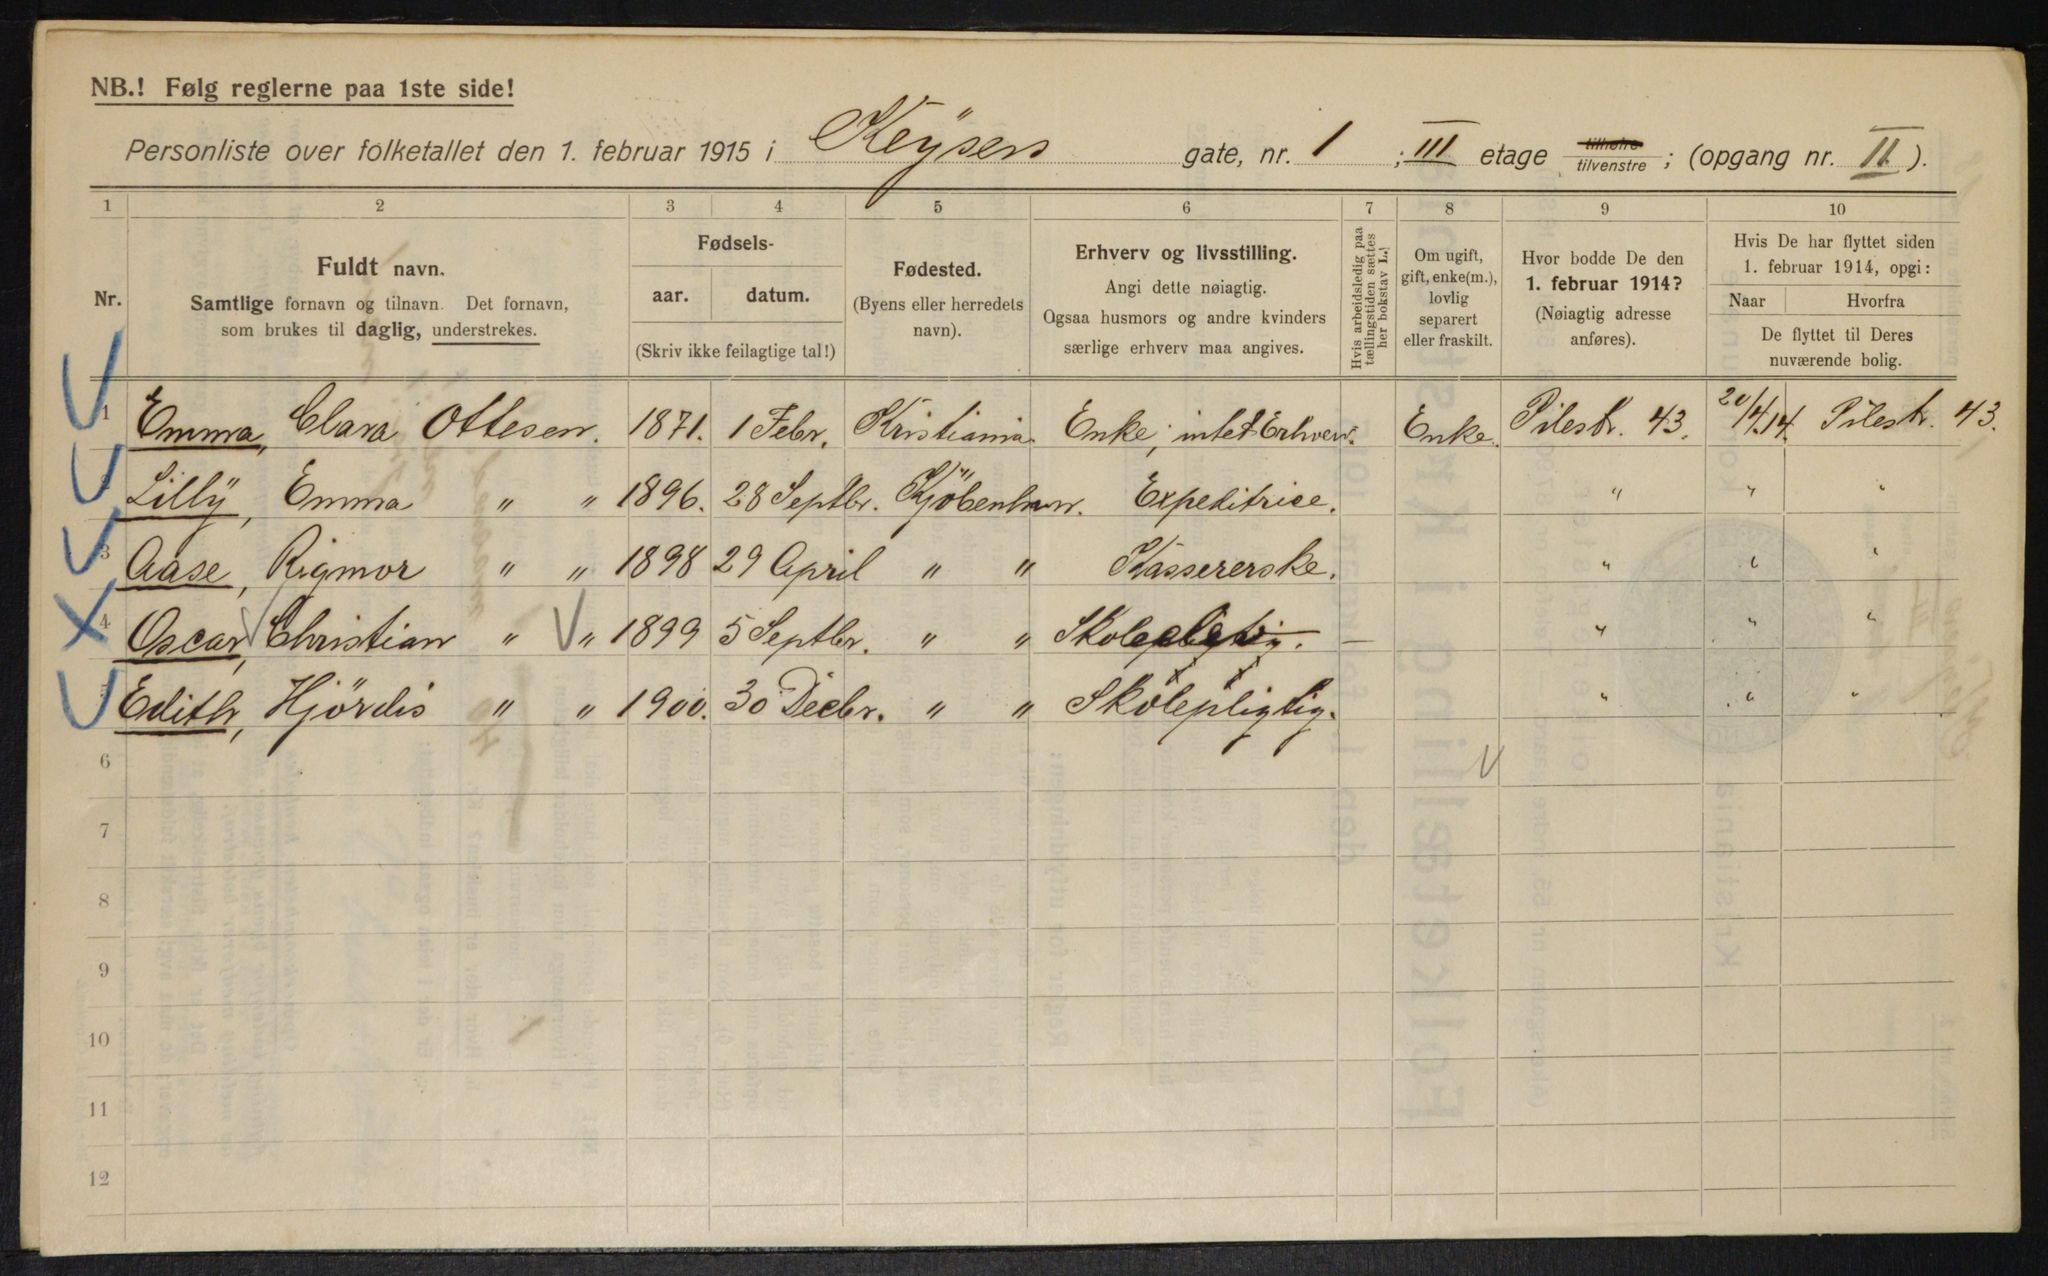 NB.! Følg reglerne paa 1ste side!
Personliste over folketallet den 1. februar 1915 i Keÿsers gate, nr. 1 ; III etage tilhøire tilvenstre ; (opgang nr. II).
1 2 3 4 5 6 7 8 9 10
Nr.
Fuldt navn.
Samtlige fornavn og tilnavn. Det fornavn,
som brukes til daglig, understrekes.
Fødsels-
aar. datum.
(Skriv ikke feilagtige tal!)
Fødested.
(Byens eller herredets
navn).
Erhverv og livsstilling.
Angi dette nøiagtig.
Ogsaa husmors og andre kvinders
særlige erhverv maa angives.
Hvis arbeidsledig paa
tællingstiden sættes
her bokstav L.!
Om ugift,
gift, enke(m.),
lovlig
separert
eller fraskilt.
Hvor bodde De den
1. februar 1914?
(Nøiagtig adresse
anføres).
Hvis De har flyttet siden
1. februar 1914, opgi:
Naar Hvorfra
De flyttet til Deres
nuværende bolig.
1 Emma, Clara Ottesen. 1871. 1 Febr. Kristiania. Enke, intet Erhverv. Enke. Pilestr. 43. 20/4.14. Pilestr. 43.
2 Lillÿ, Emma " " 1896. 28 Septbr. Kjöbenhavn. Expeditrice. " " "
3 Aase, Rigmor " " 1898 29 April " " Kassererske. " " "
4 Oscar, Christian " " 1899 5 Septbr. " " — " " "
5 Edith, Hjördis " " 1900. 30 Decbr. " " Skolepligtig. " " "
6
7
8
9
10
11
12